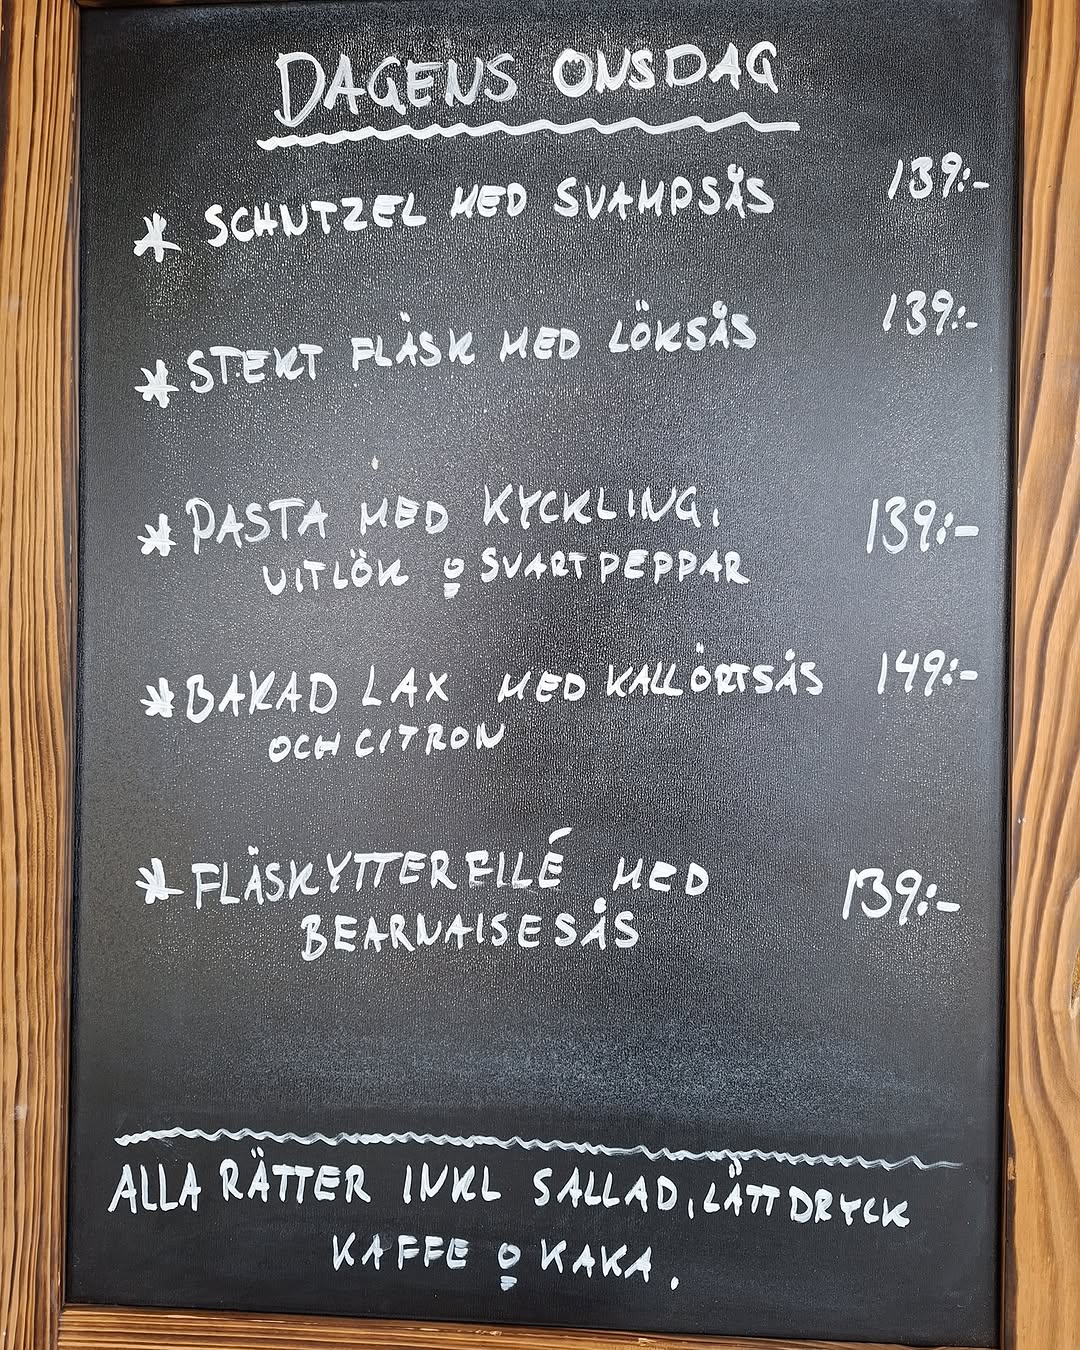 DAGENS ONSDAG
* SCHNTZEL MED SVAMPSÅS 139:-
* STEKT FLÄSK MED LÖKSÅS 139:-
* PASTA MED KYCKLING, 139:-
VITLÖK o SVARTPEPPAR
* BAKAD LAX MED KALLÖRTSÅS 149:-
OCH CITRON
* FLÄSKYTTERFILLÉ MED 139:-
BEARNAISESÅS
ALLA RÄTTER INKL SALLAD, LÄTTDRYCK
KAFFE o KAKA.